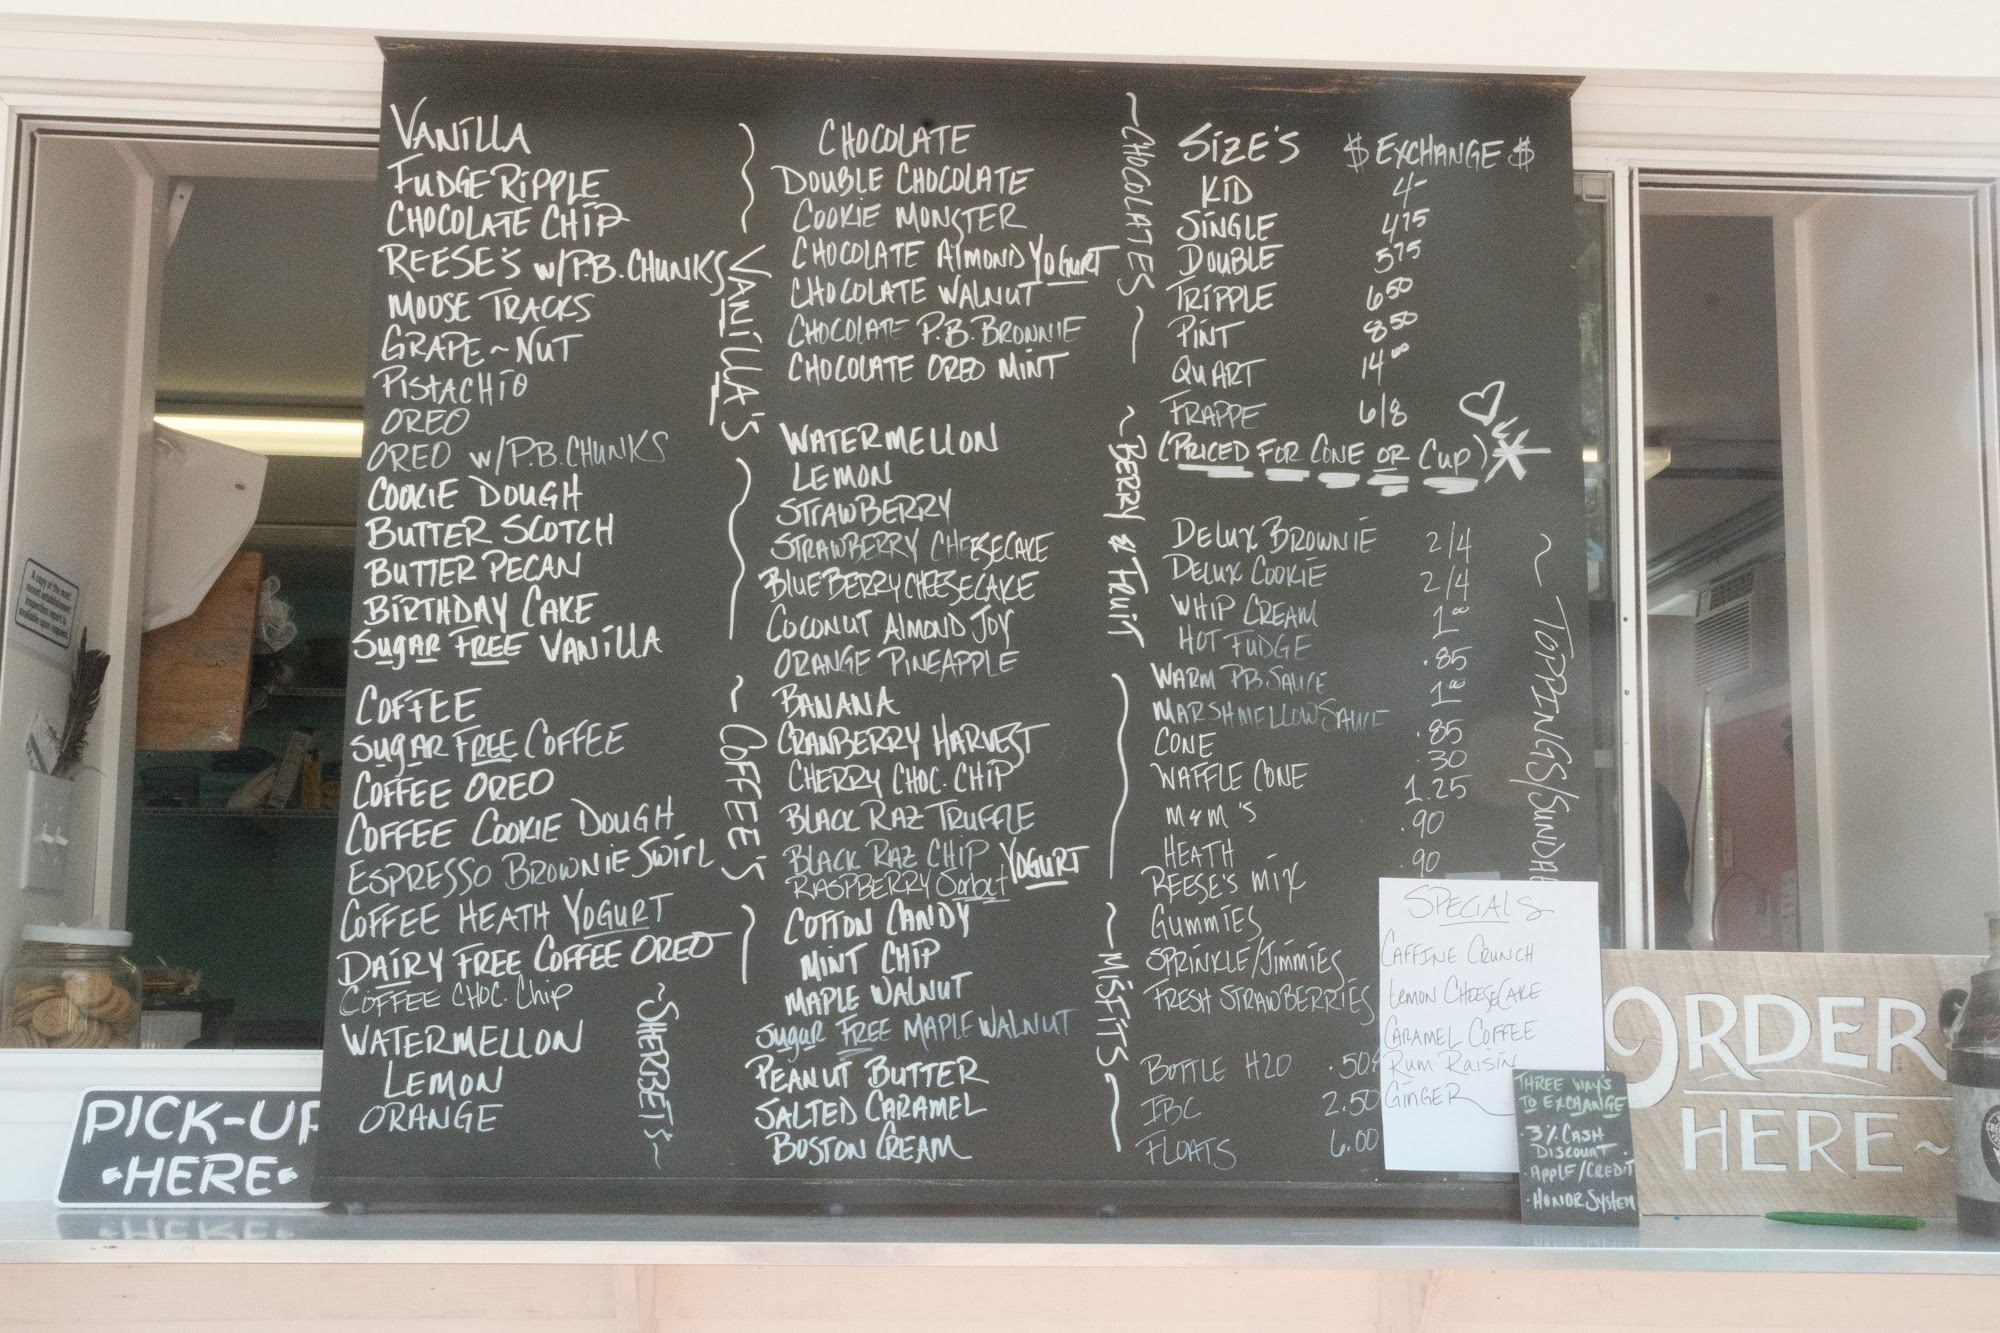 VANILLA
FUDGE RIPPLE
CHOCOLATE CHIP
REESE'S W/P.B. CHUNKS
MOOSE TRACKS
GRAPE~NUT
PISTACHIO
OREO
OREO W/P.B. CHUNKS
COOKIE DOUGH
BUTTER SCOTCH
BUTTER PECAN
BIRTHDAY CAKE
SUGAR FREE VANILLA
~ VANILLA'S ~
COFFEE
SUGAR FREE COFFEE
COFFEE OREO
COFFEE COOKIE DOUGH
ESPRESSO BROWNIE SWIRL
COFFEE HEATH YOGURT
DAIRY FREE COFFEE OREO
COFFEE CHOC. CHIP
~ COFFEE'S ~
WATERMELLON
LEMON
ORANGE
~SHERBET'S~
CHOCOLATE
DOUBLE CHOCOLATE
COOKIE MONSTER
CHOCOLATE ALMOND YOGURT
CHOCOLATE WALNUT
CHOCOLATE P.B. BROWNIE
CHOCOLATE OREO MINT
~CHOCOLATES~
WATERMELLON
LEMON
STRAWBERRY
STRAWBERRY CHEESECAKE
BLUEBERRY CHEESECAKE
COCONUT ALMOND JOY
ORANGE PINEAPPLE
BANANA
CRANBERRY HARVEST
CHERRY CHOC. CHIP
BLACK RAZ TRUFFLE
BLACK RAZ CHIP YOGURT
RASPBERRY Sorbet
~BERRY & FRUIT~
COTTON CANDY
MINT CHIP
MAPLE WALNUT
SUGAR FREE MAPLE WALNUT
PEANUT BUTTER
SALTED CARAMEL
BOSTON CREAM
~MISFITS~
SIZE'S $ EXCHANGE $
KID 4-
SINGLE 4.75
DOUBLE 5.75
TRIPPLE 6.50
PINT 8.50
QUART 14.00
FRAPPE 6/8
(PRICED FOR CONE OR CUP)
DELUX BROWNIE 2/4
DELUX COOKIE 2/4
WHIP CREAM 1.00
HOT FUDGE .85
WARM PB SAUCE 1.00
MARSHMELLOW SAUCE .85
CONE .30
WAFFLE CONE 1.25
M&M'S .90
HEATH .90
REESE'S MIX
GUMMIES
SPRINKLE/JIMMIES
FRESH STRAWBERRIES
~ TOPPINGS/SUNDAE
BOTTLE H2O .50¢
IBC 2.50
FLOATS 6.00
SPECIALS
CAFFINE CRUNCH
LEMON CHEESECAKE
CARAMEL COFFEE
RUM RAISIN
GINGER
THREE WAYS
TO EXCHANGE
·3% CASH
DISCOUNT
·APPLE/CREDIT
·HONOR SYSTEM
ORDER
HERE~
PICK-UP
·HERE·
A copy of the most
recent establishment
inspection report is
available upon request.